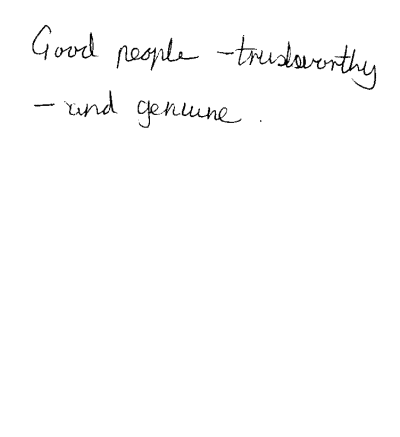 Good people - trustworthy
- and genuine .